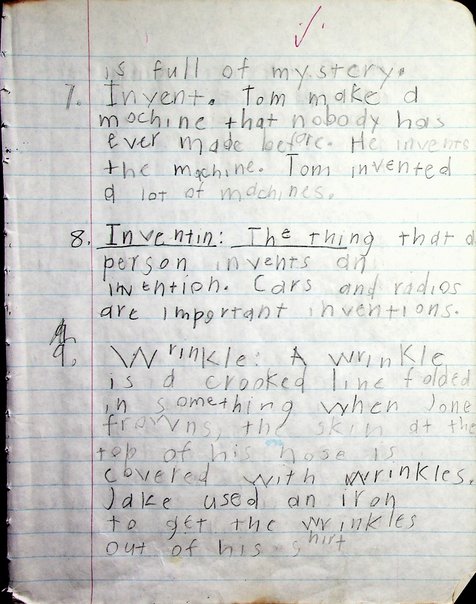 is full of mystery.
7. Invent. Tom make a
machine that nobody has
ever made before. He invents
the machine. Tom invented
a lot of machines.
8. Inventin: The thing that a
person invents an
invention. Cars and radios
are important inventions.
9. Wrinkle: A wrinkle
is a crooked line folded
in something when Jone
frowns, the skin at the
top of his nose is
covered with wrinkles.
Jake used an iron
to get the wrinkles
out of his shirt